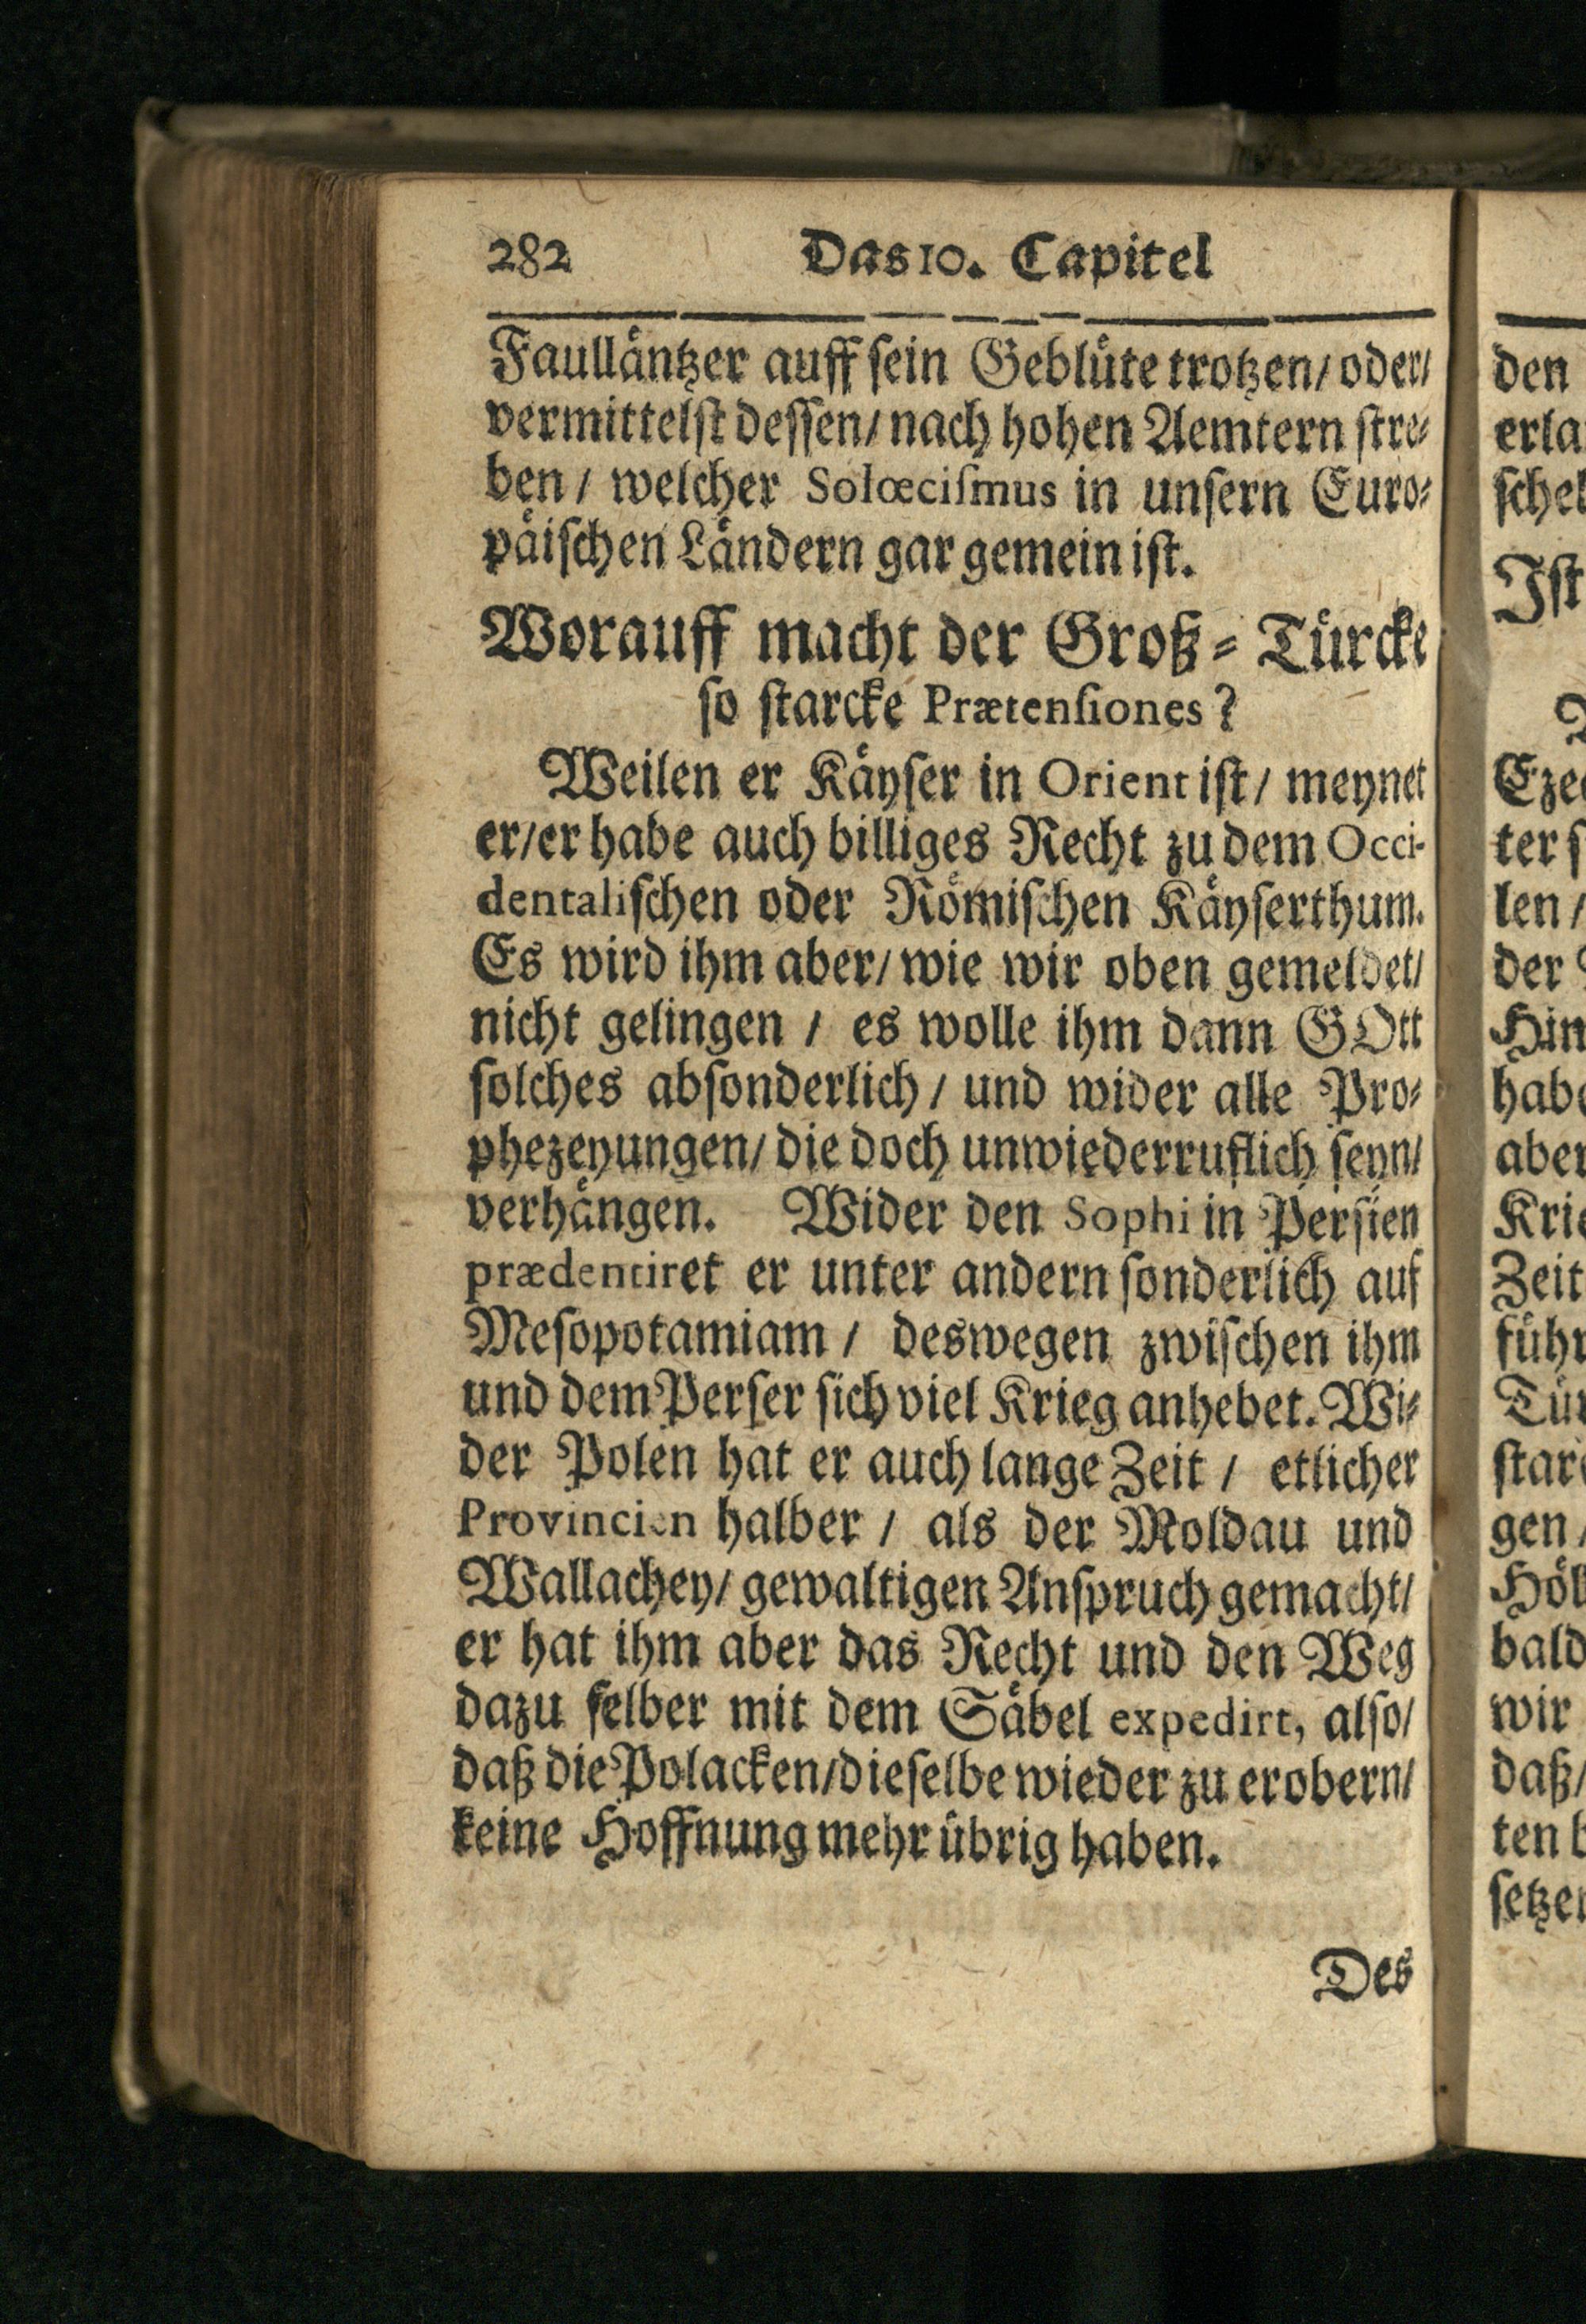 282 Das 10. Capitel
Faulläntzer auff sein Geblüte trotzen/ oder/
vermittelst dessen/ nach hohen Aemtern stre-
ben / welcher Solœcismus in unsern Euro-
päischen Ländern gar gemein ist.
Worauff macht der Groß-Türcke
so starcke Prætensiones?
Weilen er Käyser in Orient ist/ meynet
er/er habe auch billiges Recht zu dem Occi-
dentalischen oder Römischen Käyserthum.
Es wird ihm aber/ wie wir oben gemeldet/
nicht gelingen / es wolle ihm dann GOtt
solches absonderlich / und wider alle Pro-
phezeyungen/ die doch unwiederruflich seyn/
verhängen. Wider den Sophi in Persien
prædentiret er unter andern sonderlich auf
Mesopotamiam / deswegen zwischen ihm
und dem Perser sich viel Krieg anhebet. Wi-
der Polen hat er auch lange Zeit / etlicher
Provincien halber / als der Moldau und
Wallachey/ gewaltigen Anspruch gemacht/
er hat ihm aber das Recht und den Weg
dazu selber mit dem Säbel expedirt, also/
daß die Polacken/dieselbe wieder zu erobern/
keine Hoffnung mehr übrig haben.
Des
den
erla
schel
Ist
Eze
ter s
len /
der
Hin
hab
aber
Krie
Zeit
führ
Tür
star
gen /
Höl
bald
wir
daß/
ten b
setzen